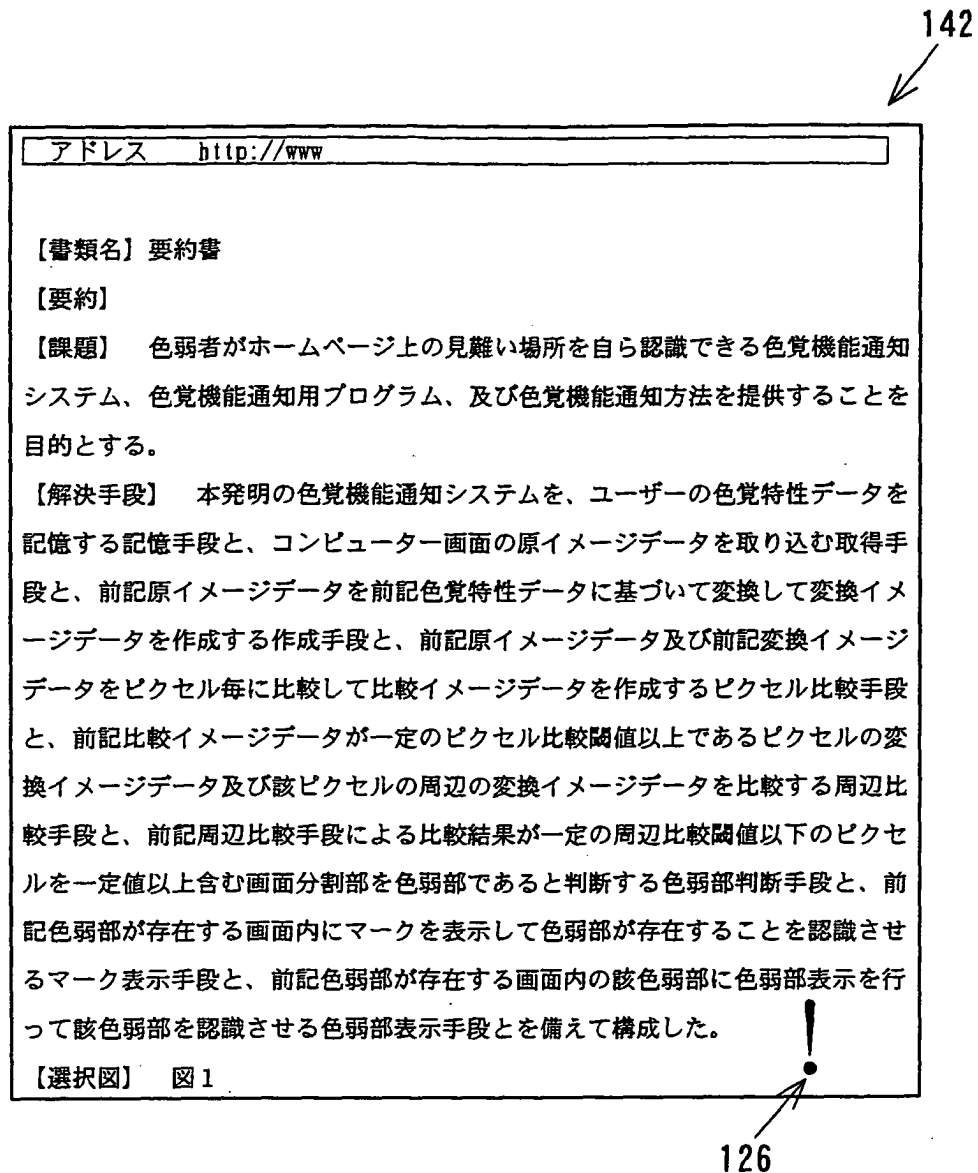 142
アドレス　http://www
【書類名】要約書
【要約】
【課題】　色弱者がホームページ上の見難い場所を自ら認識できる色覚機能通知
システム、色覚機能通知用プログラム、及び色覚機能通知方法を提供することを
目的とする。
【解決手段】　本発明の色覚機能通知システムを、ユーザーの色覚特性データを
記憶する記憶手段と、コンピューター画面の原イメージデータを取り込む取得手
段と、前記原イメージデータを前記色覚特性データに基づいて変換して変換イメ
ージデータを作成する作成手段と、前記原イメージデータ及び前記変換イメージ
データをピクセル毎に比較して比較イメージデータを作成するピクセル比較手段
と、前記比較イメージデータが一定のピクセル比較閾値以上であるピクセルの変
換イメージデータ及び該ピクセルの周辺の変換イメージデータを比較する周辺比
較手段と、前記周辺比較手段による比較結果が一定の周辺比較閾値以下のピクセ
ルを一定値以上含む画面分割部を色弱部であると判断する色弱部判断手段と、前
記色弱部が存在する画面内にマークを表示して色弱部が存在することを認識させ
るマーク表示手段と、前記色弱部が存在する画面内の該色弱部に色弱部表示を行
って該色弱部を認識させる色弱部表示手段とを備えて構成した。
!
【選択図】　図1
126